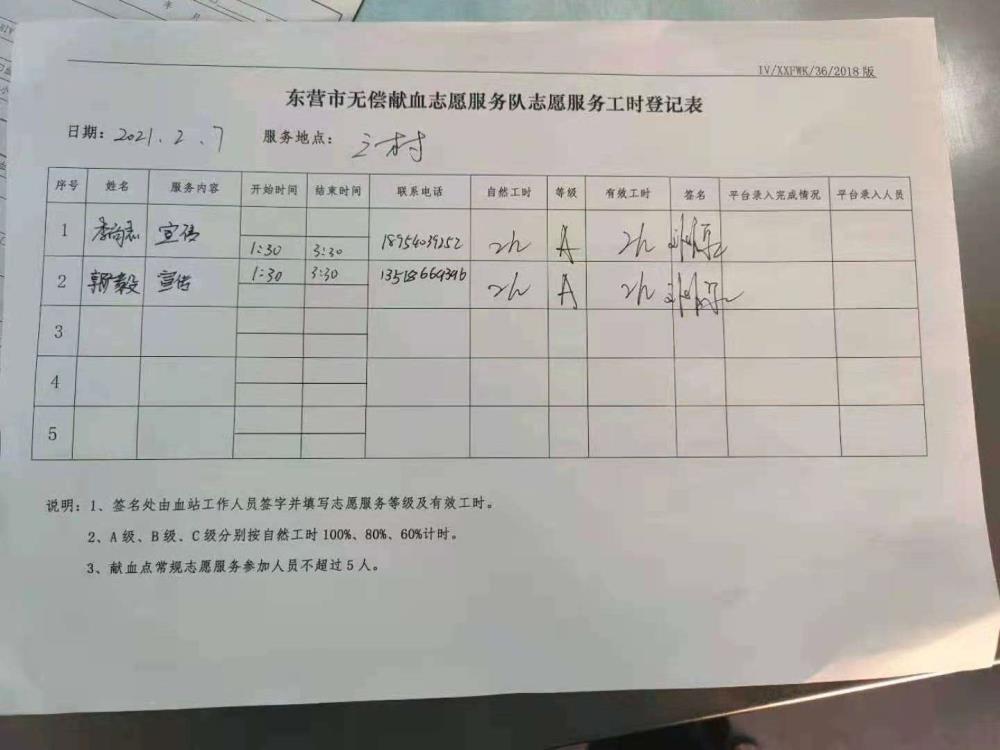 IV/XXFWK/36/2018版
东营市无偿献血志愿服务队志愿服务工时登记表
日期：2021.2.7 服务地点：
序号 姓名 服务内容 开始时间 结束时间 联系电话 自然工时 等级 有效工时 签名 平台录入完成情况 平台录入人员
1 宣传 1:30 3:30 18954039252 2h A 2h
2 郭毅 宣传 1:30 3:30 13518669396 2h A 2h
3
4
5
说明：1、签名处由血站工作人员签字并填写志愿服务等级及有效工时。
2、A级、B级、C级分别按自然工时100%、80%、60%计时。
3、献血点常规志愿服务参加人员不超过5人。